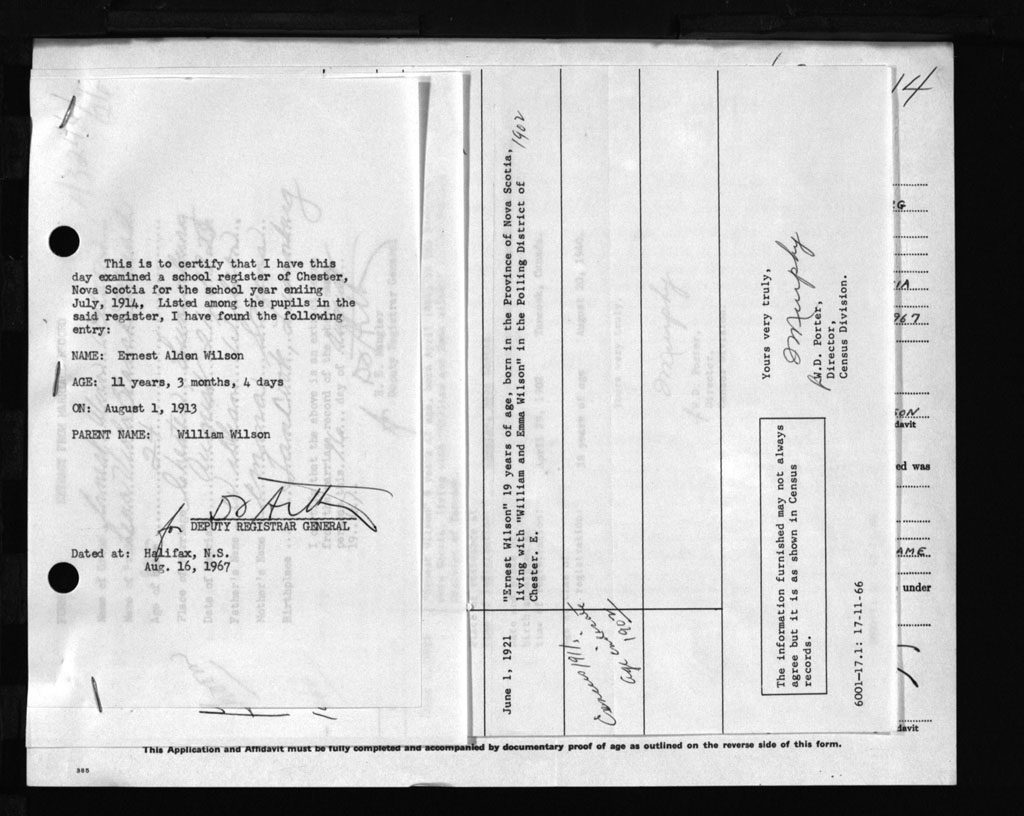 This is to certify that I have this
day examined a school register of Chester,
Nova Scotia for the school year ending
July, 1914, Listed among the pupils in the
said register, I have found the following
entry:
NAME: Ernest Alden Wilson
AGE: 11 years, 3 months, 4 days
ON: August 1, 1913
PARENT NAME: William Wilson
for
DEPUTY REGISTRAR GENERAL
Dated at: Halifax, N.S.
Aug. 16, 1967
June 1, 1921
"Ernest Wilson" 19 years of age, born in the Province of Nova Scotia, 1902
living with "William and Emma Wilson" in the Polling District of
Chester. E.
Census 1911.
age
1901
The information furnished may not always
agree but it is as shown in Census
records.
6001-17.1: 17-11-66
Yours very truly,
Murphy
W.D. Porter,
Director,
Census Division.
14
G
IA
967
SON
davit
ed was
AME
under
davit
This Application and Affidavit must be fully completed and accompanied by documentary proof of age as outlined on the reverse side of this form.
385